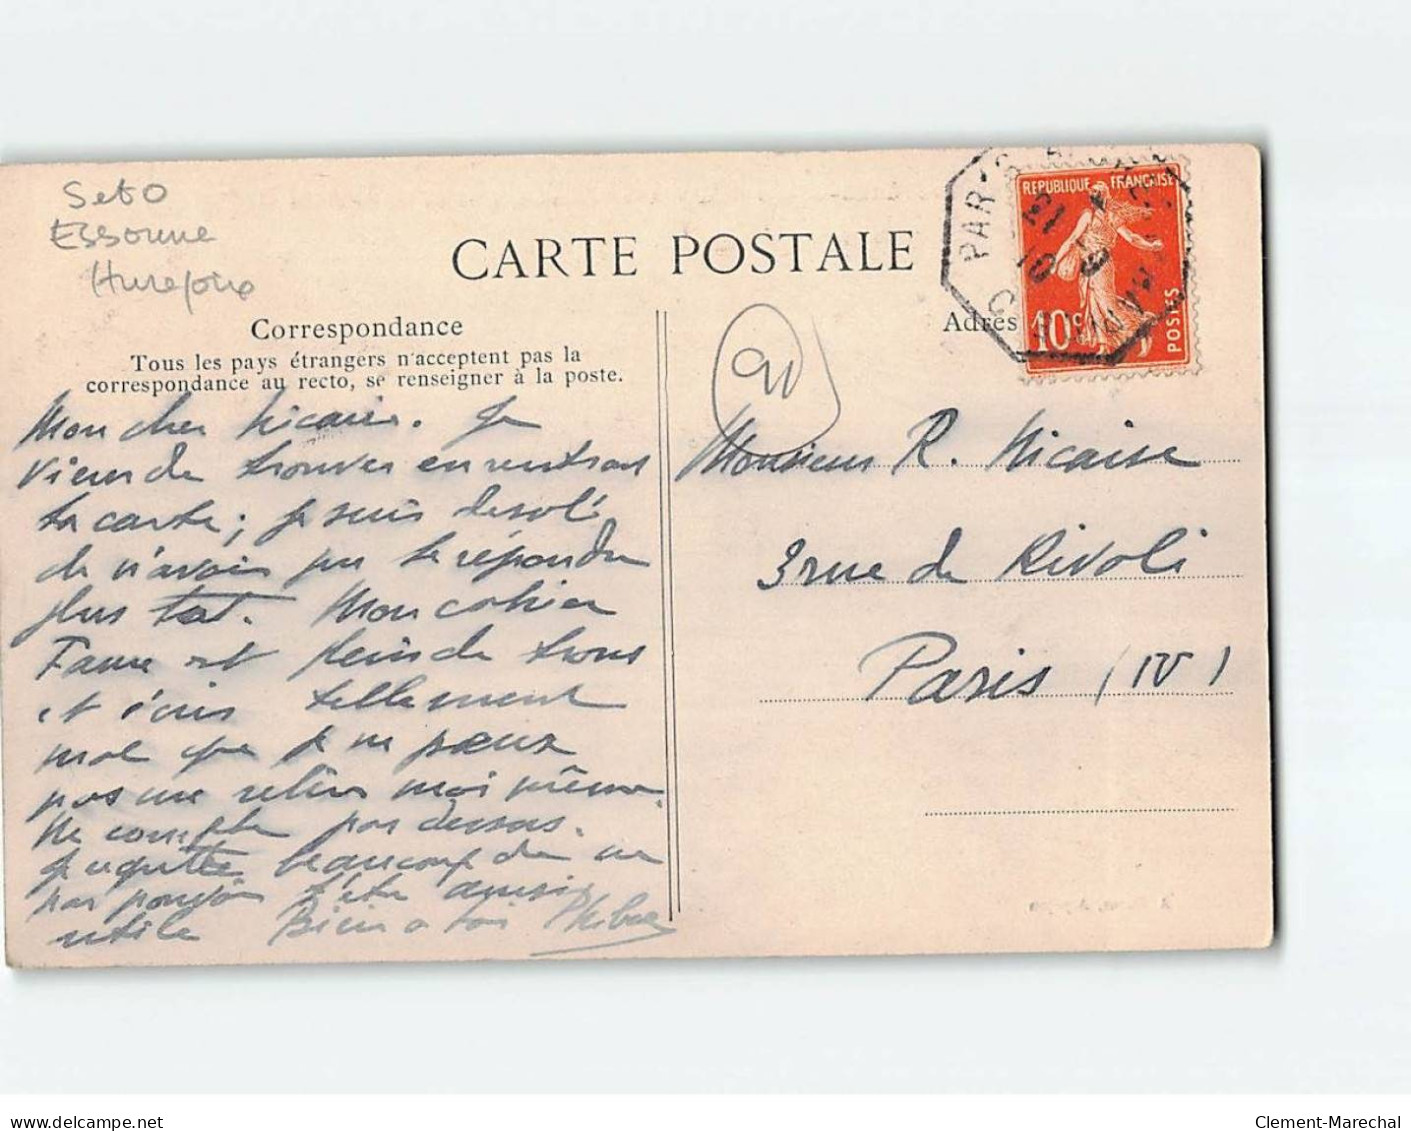 Set O
Essonne
Hurepoix
CARTE POSTALE
Correspondance
Tous les pays étrangers n'acceptent pas la
correspondance au recto, se renseigner à la poste.
Adres
REPUBLIQUE FRANÇAISE
10c
POSTES
PARIS
Mon cher Nicaise. Je
viens de trouver en rentrant
ta carte; je suis désolé
de n'avoir pu te répondre
plus tôt. Mon cahier
Faure est plein de trous
et écris tellement
mal que je ne peux
pas me relire moi même.
Ne compte pas dessus.
Je regrette beaucoup de ne
pas pouvoir t'être aussi
utile Bien a toi
Monsieur R. Nicaise
3 rue de Rivoli
Paris (IV)
Clement-Marechal